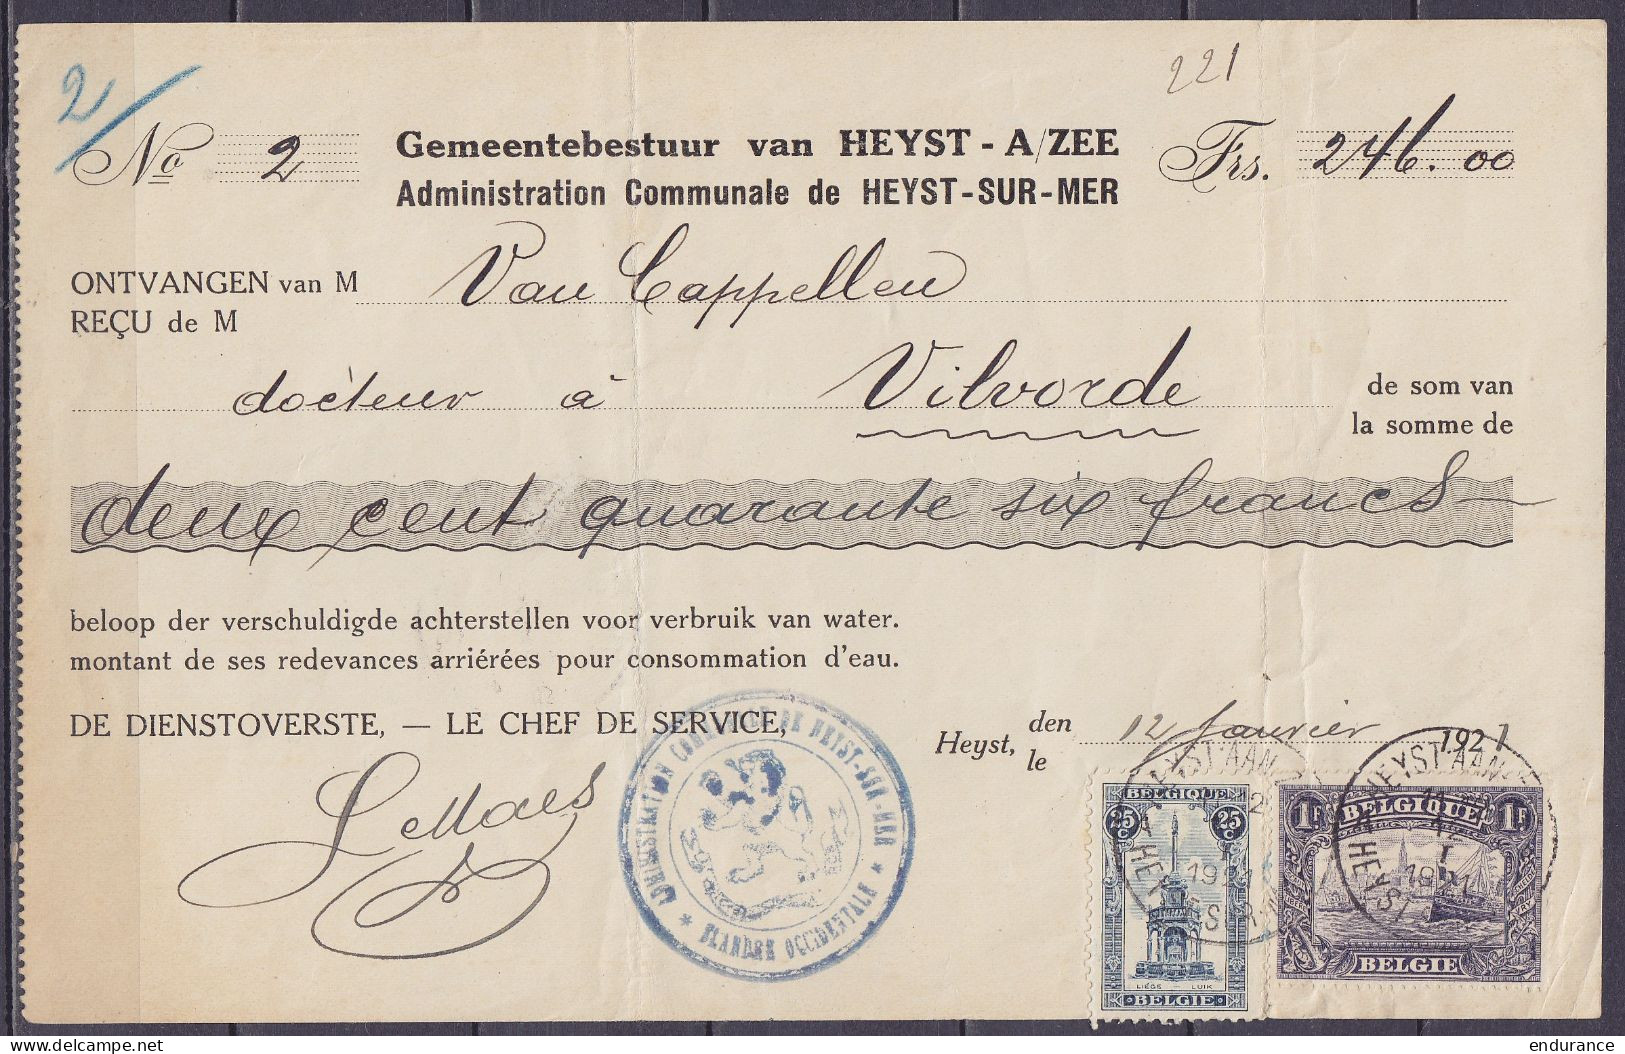 2/
221
No 2
Gemeentebestuur van HEYST - A/ZEE
Administration Communale de HEYST-SUR-MER
Frs. 246.00
ONTVANGEN van M
REÇU de M
Van Cappellen
docteur à Vilvorde
de som van
la somme de
deux cent quarante six francs
beloop der verschuldigde achterstellen voor verbruik van water.
montant de ses redevances arriérées pour consommation d'eau.
DE DIENSTOVERSTE, — LE CHEF DE SERVICE,
Heyst, den
le
12 Janvier 1921
ADMINISTRATION COMMUNALE DE HEYST-SUR-MER
FLANDRE OCCIDENTALE
BELGIQUE
25c 25c
LIÉGE - LUIK
BELGIË
HEYST AAN
1921
HEYST-SUR-
1F BELGIQUE 1F
HEYST AAN
12
I
1921
HEYST
BELGIË
delcampe.net
endurance